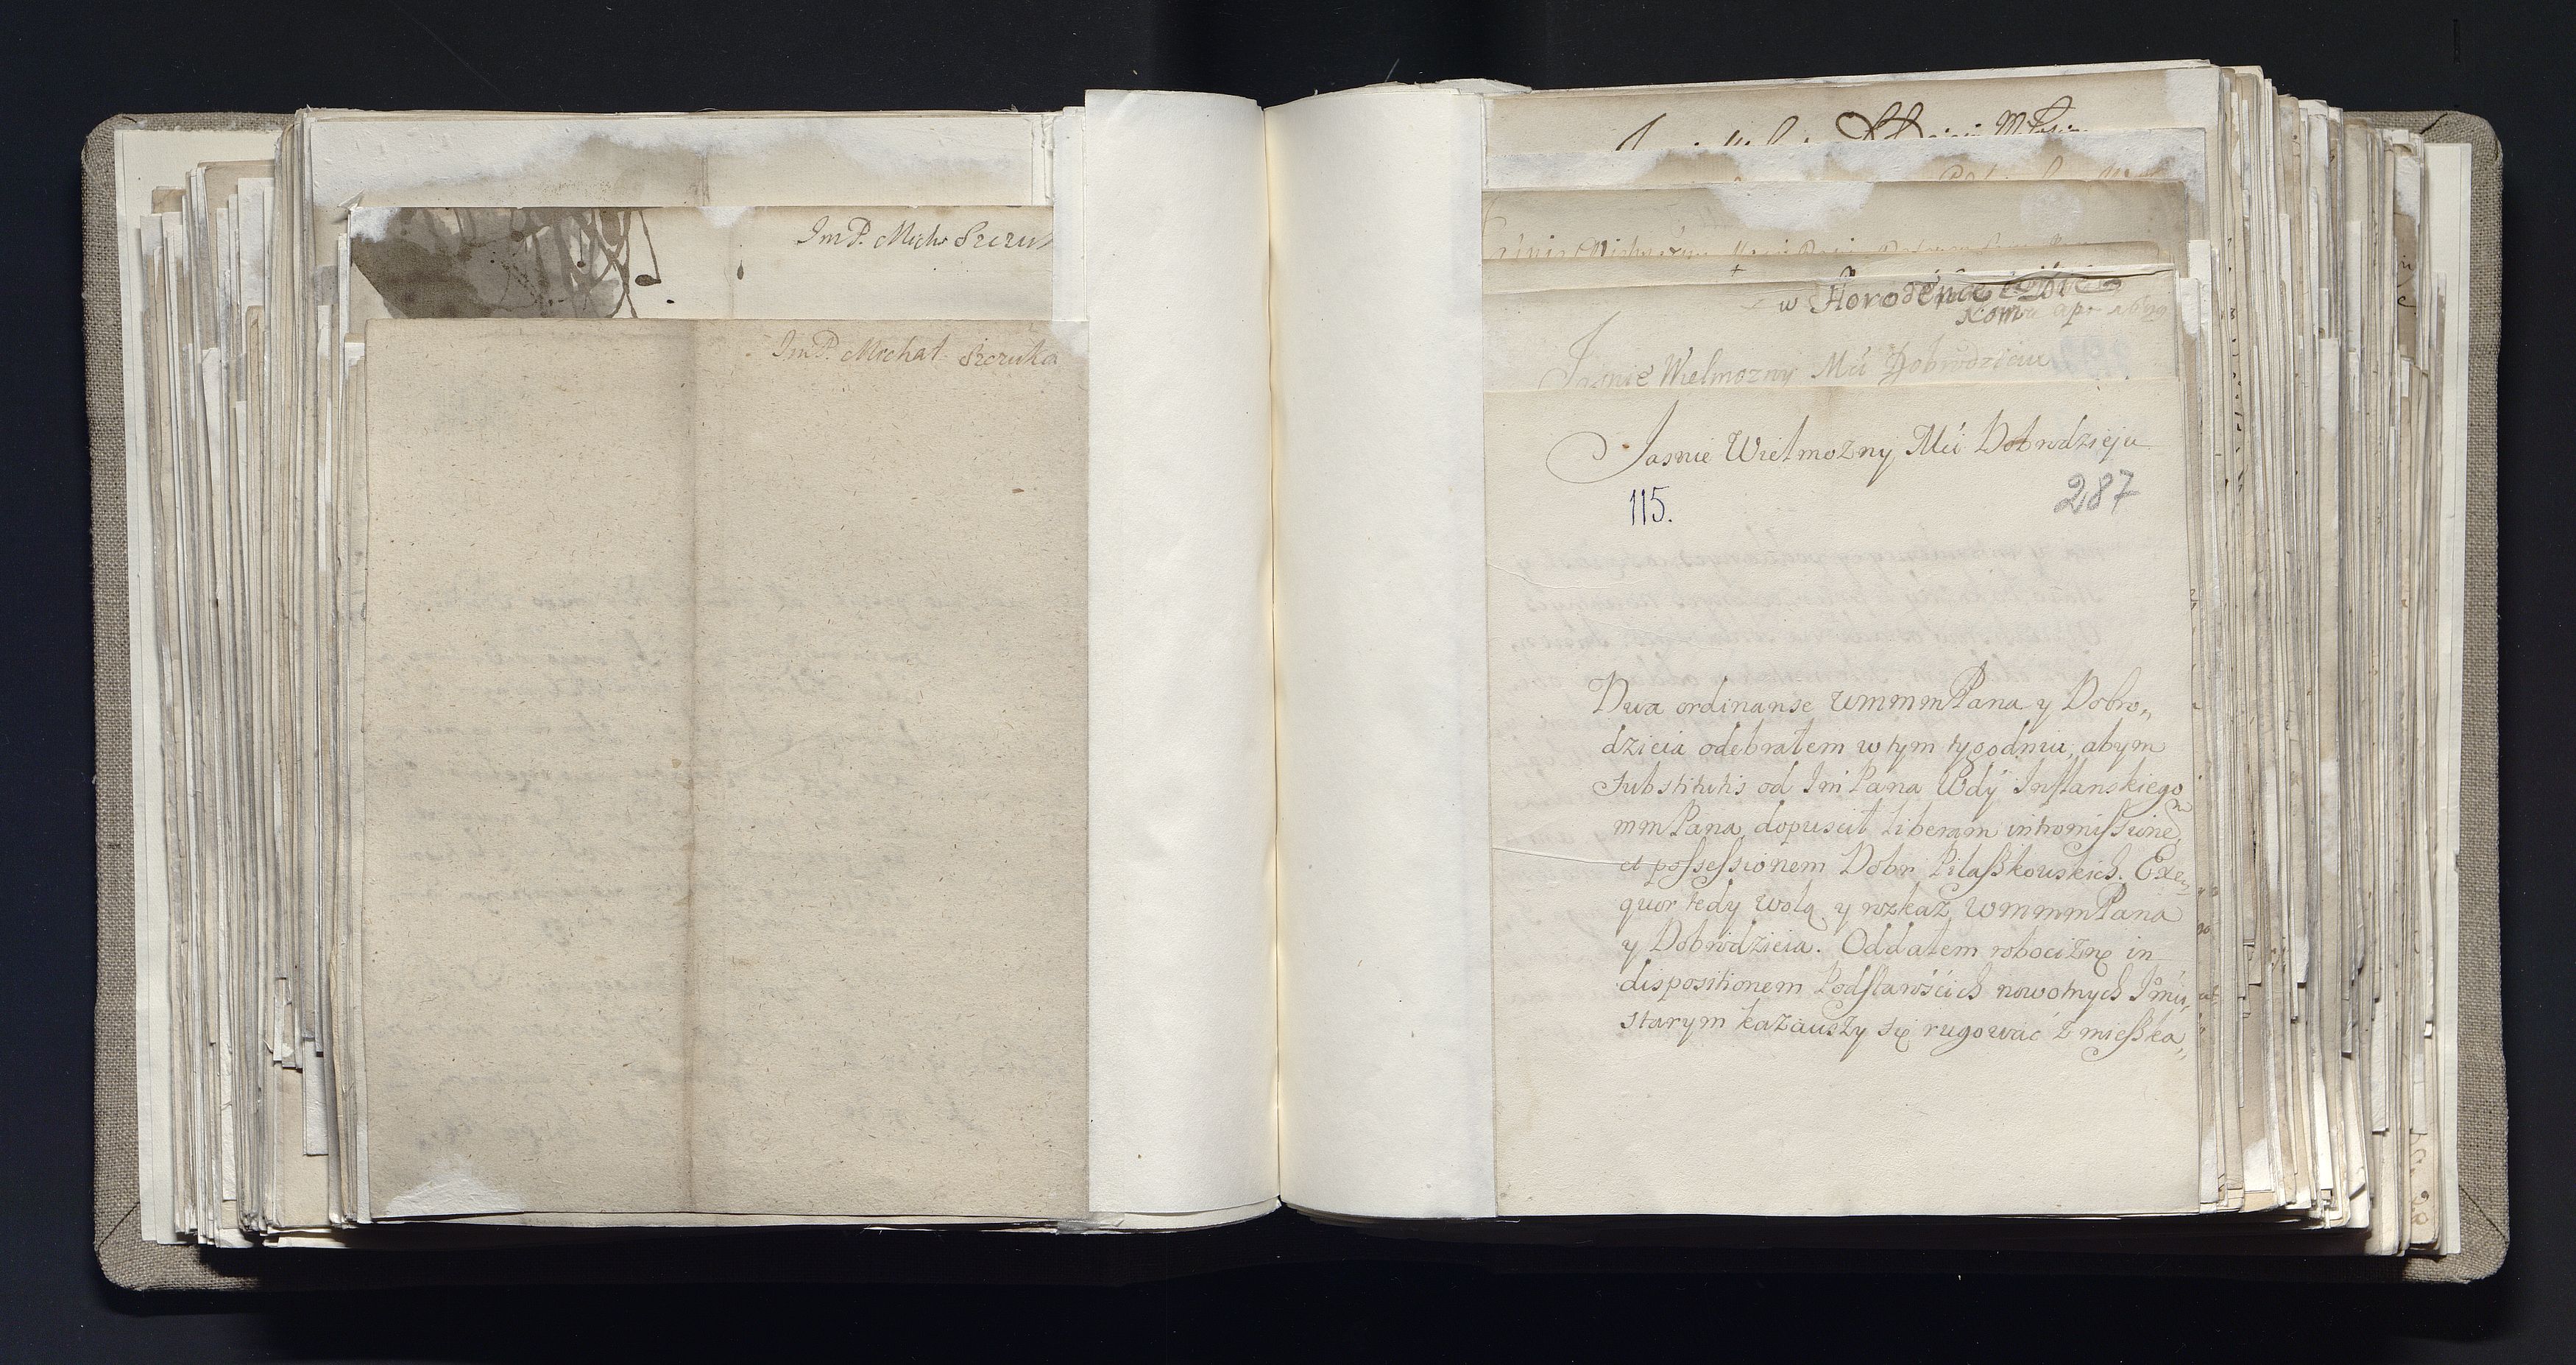 ImP. Mich. Szczuk
ImP. Michał Szczuka
w Horodence
Jasnie Wielmozny Mći Dobrodzieiu
Jasnie Wielmozny Mći Dobrodzieju
115.
287
Dwa ordinanse WmmmPana y Dobro„
dzieia odebrałem w tym tygodniu, abym
substitutis od Jm Pana Wdy Inflanskiego
mmPana, dopuscił liberam intromissionẽ,
et possessionem Dobr Pilaszkowskich. Exe„
quor tedy wolą y rozkaz WmmmPana
y Dobrodzieia. Oddałem robociznę in
dispositionem Podstarościch nowotnych Jmći,
starym kazawszy się rugować z mieszka„